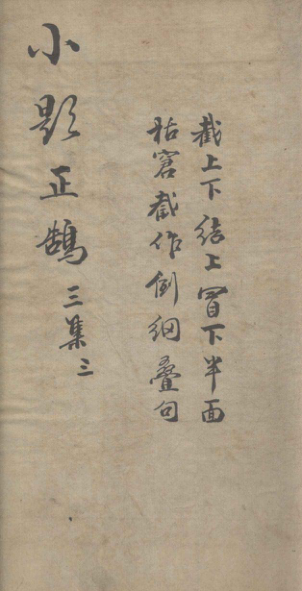 截上下結上冒下半面
枯窘截作倒綱疊句
小題正鵠三集三